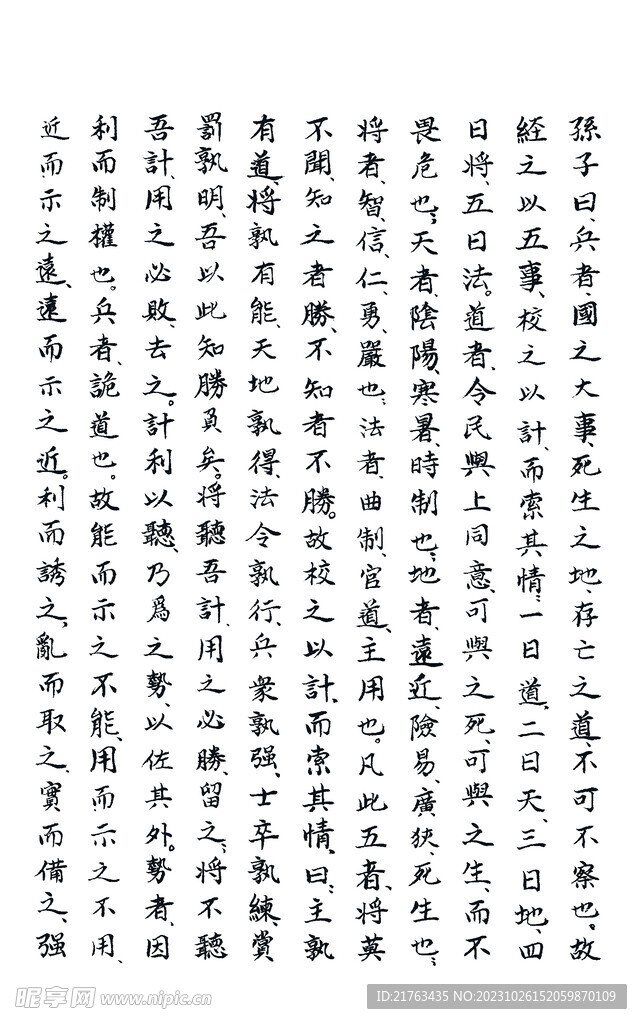 孫子曰、兵者、國之大事、死生之地、存亡之道、不可不察也。故
經之以五事、校之以計、而索其情：一曰道、二曰天、三曰地、四
曰將、五曰法。道者、令民與上同意、可與之死、可與之生、而不
畏危也；天者、陰陽、寒暑、時制也；地者、遠近、險易、廣狹、死生也；
將者、智、信、仁、勇、嚴也；法者、曲制、官道、主用也。凡此五者、將莫
不聞、知之者勝、不知者不勝。故校之以計、而索其情、曰：主孰
有道、將孰有能、天地孰得、法令孰行、兵衆孰强、士卒孰練、賞
罰孰明、吾以此知勝負矣。將聽吾計、用之必勝、留之；將不聽
吾計、用之必敗、去之。計利以聽、乃爲之勢、以佐其外。勢者、因
利而制權也。兵者、詭道也。故能而示之不能、用而示之不用、
近而示之遠、遠而示之近。利而誘之，亂而取之、實而備之、强
昵享网 www.nipic.cn
ID:21763435 NO:20231026152059870109